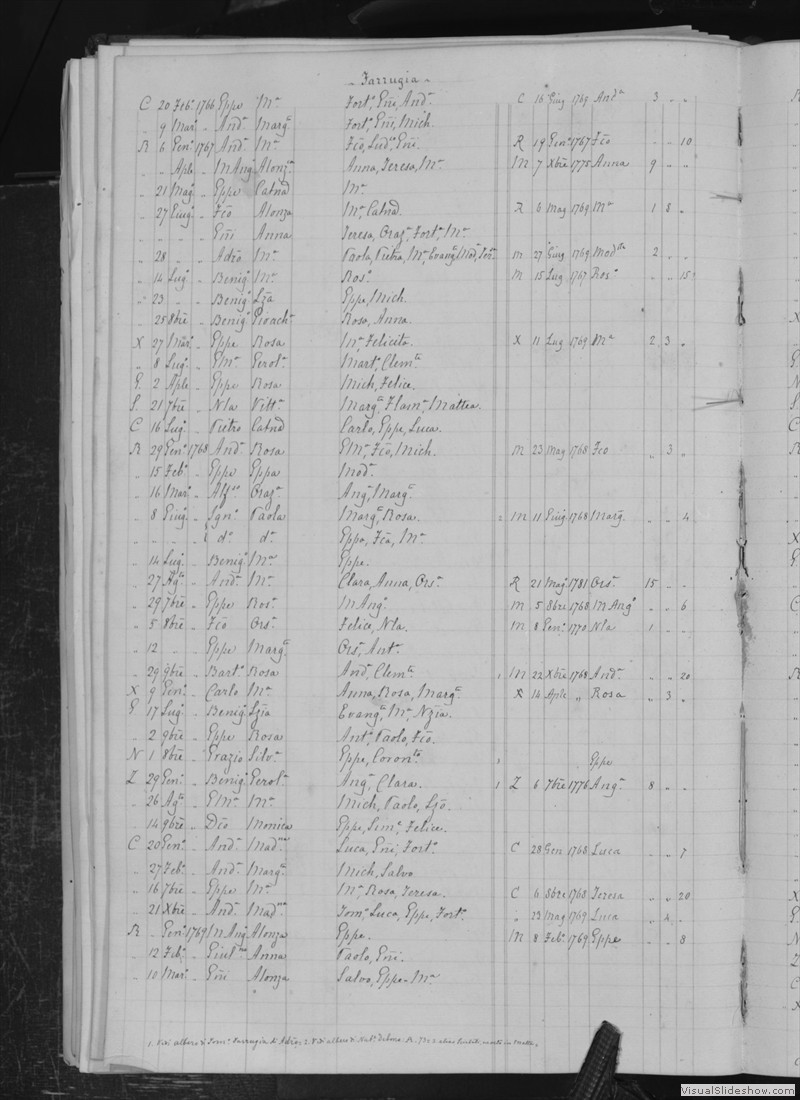 Farrugia
C 20 Feb.º 1766 Eppe M.ª Fort.ª Eñi, And.ª C 16 Giug 1769 And.ª 3 „ „
„ 9 Mar.º „ And.ª Marg.ª Fort.ª Eñi, Mich.
R 6 Gen.º 1767 And.ª M.ª Fc̃o, Lud.co, Eñi. R 19 Gen.º 1767 Fc̃o „ „ 10
„ „ Aple „ M Ang. Alonz.ª Anna, Teresa, M.ª M 7 Xbre 1775 Anna 9 „ „
„ 21 Mag. „ Eppe Catnd M.ª
„ 27 Giug. „ Fc̃o Alonza M.ª, Catnd. R 6 Mag 1769 M.ª 1 8 „
„ „ „ „ Eñi Anna Teresa, Graz.ª, Fort.ª, M.ª
„ 28 „ „ Adrõ M.ª Paola, Pietra, M.ª, Evang.ª, Mod. M 27 Giug 1769 Mod.ta 2 „ „
„ 14 Lug. „ Benig. M.ª Ros.ª M 15 Lug 1767 Ros.ª „ „ 15
„ 23 „ „ Benig. Lz̃a Eppe, Mich.
„ 25 8bre „ Benig. Gioach.ª Rosa, Anna.
X 27 Mar. „ Eppe Rosa M.ª, Felicita. X 11 Lug 1769 M.ª 2 3 „
„ 8 Lug. „ E M.ª Gerol.ª Mart.ª, Clem.ta
G. 2 Aple „ Eppe Rosa Mich, Felice.
S. 21 7bre „ Nla Vitt.ª Marg.ª, Flam.ª, Mattea.
C 16 Lug. „ Pietro Catnd Carlo, Eppe, Luca.
R 29 Gen.º 1768 And.ª Rosa E M.ª, Fc̃o, Mich. M 23 Mag 1768 Fco „ 3 „
„ 15 Feb.º „ Eppe Eppa Mod.ª
„ 16 Mar.º „ Alf.so Graz.ª Ang.ª, Marg.ª
„ 8 Giug. „ Ign.º Paola Marg.ª, Rosa. 2 M 11 Giug 1768 Marg. „ „ 4
„ „ „ „ d.º d.º Eppa, Fc̃a, M.ª
„ 14 Lug. „ Benig. M.ª Eppe.
„ 27 Ag.to „ And.ª M.ª Clara, Anna, Ors.ª R 21 Mag. 1781 Ors.ª 15 „ „
„ 29 7bre „ Eppe Ros.ª M Ang. M 5 8bre 1768 M Ang.º „ „ 6
„ 5 8bre „ Fc̃o Ors.ª Felice, Nla. M 8 Gen.º 1770 Nla 1 „ „
„ 12 „ „ Eppe Marg.ª Ors.ª, Ant.ª
„ 29 9bre „ Bart.º Rosa And.ª, Clem.ta 1 M 22 Xbre 1768 And.ª „ „ 20
X 9 Gen.º „ Carlo M.ª Anna, Rosa, Marg.ª X 14 Aple „ Rosa „ 3 „
G 17 Lug. „ Benig. Lz̃ia Evang.ª, M.ª, Nz̃ia.
„ 2 9bre „ Eppe Rosa Ant.º, Paolo, Fc̃o.
N 1 8bre „ Grazio Silv.ª Eppe, Coron.to Eppe
Z 29 Gen.º „ Benig. Gerol.ª Ang.º, Clara. 1 Z 6 7bre 1776 Ang.º 8 „ „
„ 26 Ag.to „ E M.ª M.ª Mich, Paolo, Lz̃o.
„ 14 9bre „ Dc̃o Monica Eppe, Sim.e, Felice.
C 20 Gen.º „ And.ª Mad.na Luca, Eñi, Fort.º C 28 Gen 1768 Luca „ „ 7
„ 27 Feb.º „ And.ª Marg.ª Mich, Salvo.
„ 16 7bre „ Eppe M.ª M.ª, Rosa, Teresa. C 6 8bre 1768 Teresa „ „ 20
„ 21 Xbre „ And.ª Mad.na Tom.º, Luca, Eppe, Fort.º „ 23 Mag 1769 Luca „ 4 „
R „ Gen.º 1769 M Ang. Alonza Eppe. M 8 Feb.º 1769 Eppe „ „ 8
„ 12 Feb.º „ Giul. Anna Paolo, Eñi.
„ 10 Mar.º „ Eñi Alonza Salvo, Eppe, M.ª
1. Vedi albero di Farrugia di Adrõ, 2. Vedi albero di
VisualSlideshow.com